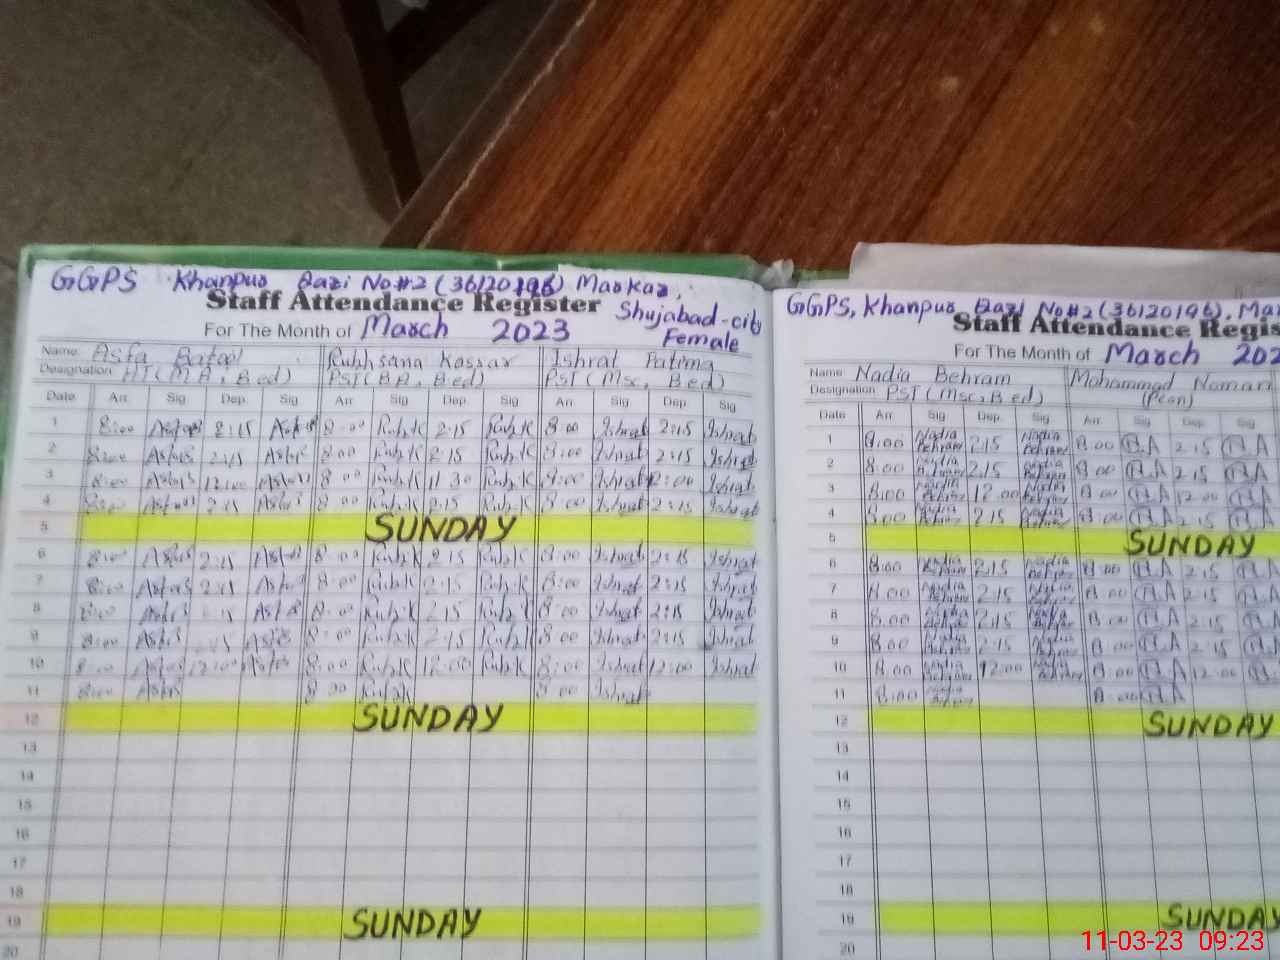 GGPS Khanpur Qazi No#2 (36120196) Markaz,
Staff Attendance Register Shujabad-city
For The Month of March 2023 Female
Name: Asfa Batool Rukhsana Kassar Ishrat Fatima
Designation HT(MA, Bed) PST(BA, Bed) PST(Msc, Bed)
Date Arr. Sig Dep. Sig Arr. Sig Dep. Sig Arr. Sig Dep. Sig
1 8:00 2:15 8:00 Rukh.K 2:15 Rukh.K 8:00 Ishrat 2:15 Ishrat
2 8:00 2:15 8:00 Rukh.K 2:15 Rukh.K 8:00 Ishrat 2:15 Ishrat
3 8:00 12:00 8:00 Rukh.K 11 30 Rukh.K 8:00 Ishrat 12:00 Ishrat
4 8:00 2:15 8:00 Rukh.K 2:15 Rukh.K 8:00 Ishrat 2:15 Ishrat
5 SUNDAY
6 8:00 2:15 8:00 Rukh.K 2:15 Rukh.K 8:00 Ishrat 2:15 Ishrat
7 8:00 2:15 8:00 Rukh.K 2:15 Rukh.K 8:00 Ishrat 2:15 Ishrat
8 8:00 2:15 8:00 Rukh.K 2:15 Rukh.K 8:00 Ishrat 2:15 Ishrat
9 8:00 2:15 8:00 Rukh.K 2:15 Rukh.K 8:00 Ishrat 2:15 Ishrat
10 8:00 12:00 8:00 Rukh.K 12:00 Rukh.K 8:00 Ishrat 12:00 Ishrat
11 8:00 8:00 Rukh.K 8:00 Ishrat
12 SUNDAY
13
14
15
16
17
18
19 SUNDAY
20
GGPS, Khanpur Qazi No#2 (36120196), Mar
Staff Attendance Regis
For The Month of March 202
Name Nadia Behram Mohammad Noman
Designation PST(Msc, Bed) (Peon)
Date Arr. Sig Dep. Sig Arr. Sig Dep. Sig
1 8:00 Nadia Behram 2:15 Nadia Behram 8:00 2:15
2 8:00 Nadia Behram 2:15 Nadia Behram 8:00 2:15
3 8:00 Nadia Behram 12:00 Nadia Behram 8:00 12:00
4 8:00 Nadia Behram 2:15 Nadia Behram 8:00 2:15
5 SUNDAY
6 8:00 Nadia Behram 2:15 Nadia Behram 8:00 2:15
7 8:00 Nadia Behram 2:15 Nadia Behram 8:00 2:15
8 8:00 Nadia Behram 2:15 Nadia Behram 8:00 2:15
9 8:00 Nadia Behram 2:15 Nadia Behram 8:00 2:15
10 8:00 Nadia Behram 12:00 Nadia Behram 8:00 12:00
11 8:00 Nadia Behram 8:00
12 SUNDAY
13
14
15
16
17
18
19 SUNDAY
20
11-03-23 09:23